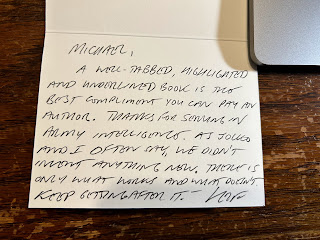 MICHAEL,
A WELL-TABBED, HIGHLIGHTED
AND UNDERLINED BOOK IS THE
BEST COMPLIMENT YOU CAN PAY AN
AUTHOR. THANKS FOR SERVING IN
ARMY INTELLIGENCE. AS JOCKO
AND I OFTEN SAY, WE DIDN'T
INVENT ANYTHING NEW, THERE IS
ONLY WHAT WORKS AND WHAT DOESN'T.
KEEP GETTING AFTER IT. - LEIF